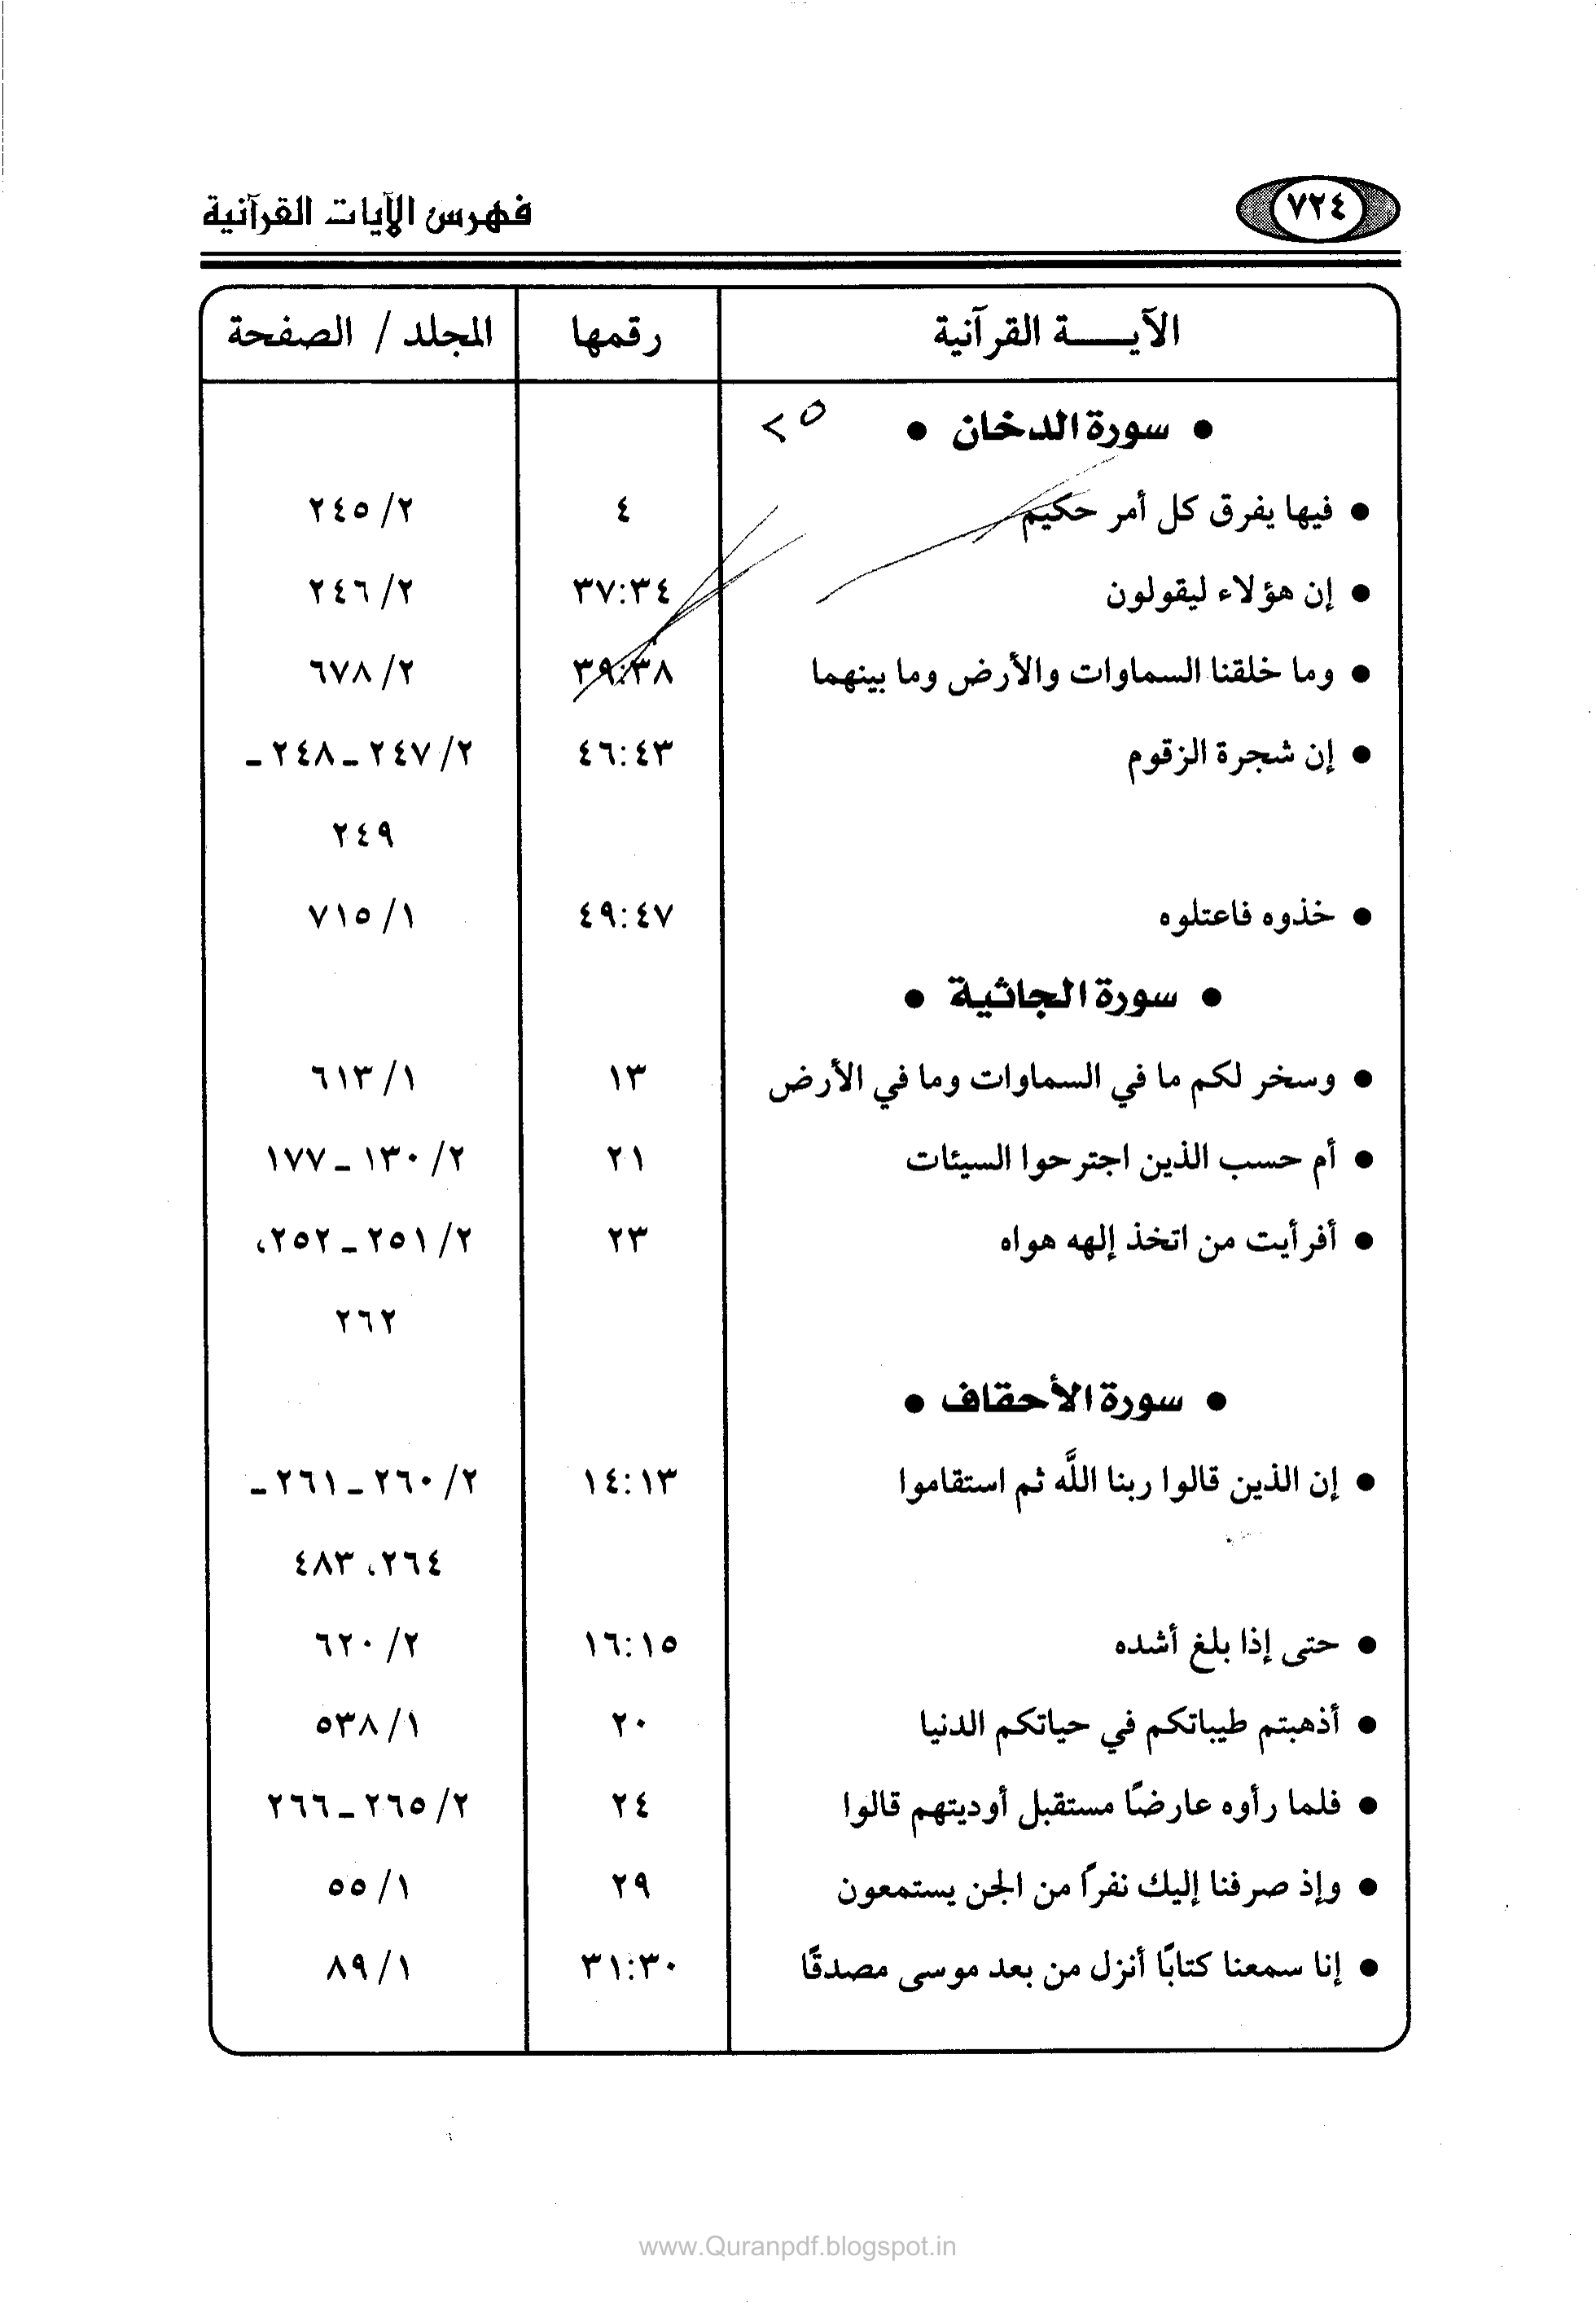 ٧٢٤ فهرس الآيات القرآنية
الآيـــة القرآنية رقمها المجلد / الصفحة
• سورة الدخان •
• فيها يفرق كل أمر حكيم ٤ ٢/ ٢٤٥
• إن هؤلاء ليقولون ٣٧:٣٤ ٢/ ٢٤٦
• وما خلقنا السماوات والأرض وما بينهما ٣٩:٣٨ ٢/ ٦٧٨
• إن شجرة الزقوم ٤٦:٤٣ ٢/ ٢٤٧ ـ ٢٤٨ ـ
٢٤٩
• خذوه فاعتلوه ٤٩:٤٧ ١/ ٧١٥
• سورة الجاثية •
• وسخر لكم ما في السماوات وما في الأرض ١٣ ١/ ٦١٣
• أم حسب الذين اجترحوا السيئات ٢١ ٢/ ١٣٠ ـ ١٧٧
• أفرأيت من اتخذ إلهه هواه ٢٣ ٢/ ٢٥١ ـ ٢٥٢،
٢٦٢
• سورة الأحقاف •
• إن الذين قالوا ربنا اللَّه ثم استقاموا ١٤:١٣ ٢/ ٢٦٠ ـ ٢٦١ ـ
٢٦٤، ٤٨٣
• حتى إذا بلغ أشده ١٦:١٥ ٢/ ٦٢٠
• أذهبتم طيباتكم في حياتكم الدنيا ٢٠ ١/ ٥٣٨
• فلما رأوه عارضًا مستقبل أوديتهم قالوا ٢٤ ٢/ ٢٦٥ ـ ٢٦٦
• وإذ صرفنا إليك نفرًا من الجن يستمعون ٢٩ ١/ ٥٥
• إنا سمعنا كتابًا أنزل من بعد موسى مصدقًا ٣١:٣٠ ١/ ٨٩
www.Quranpdf.blogspot.in